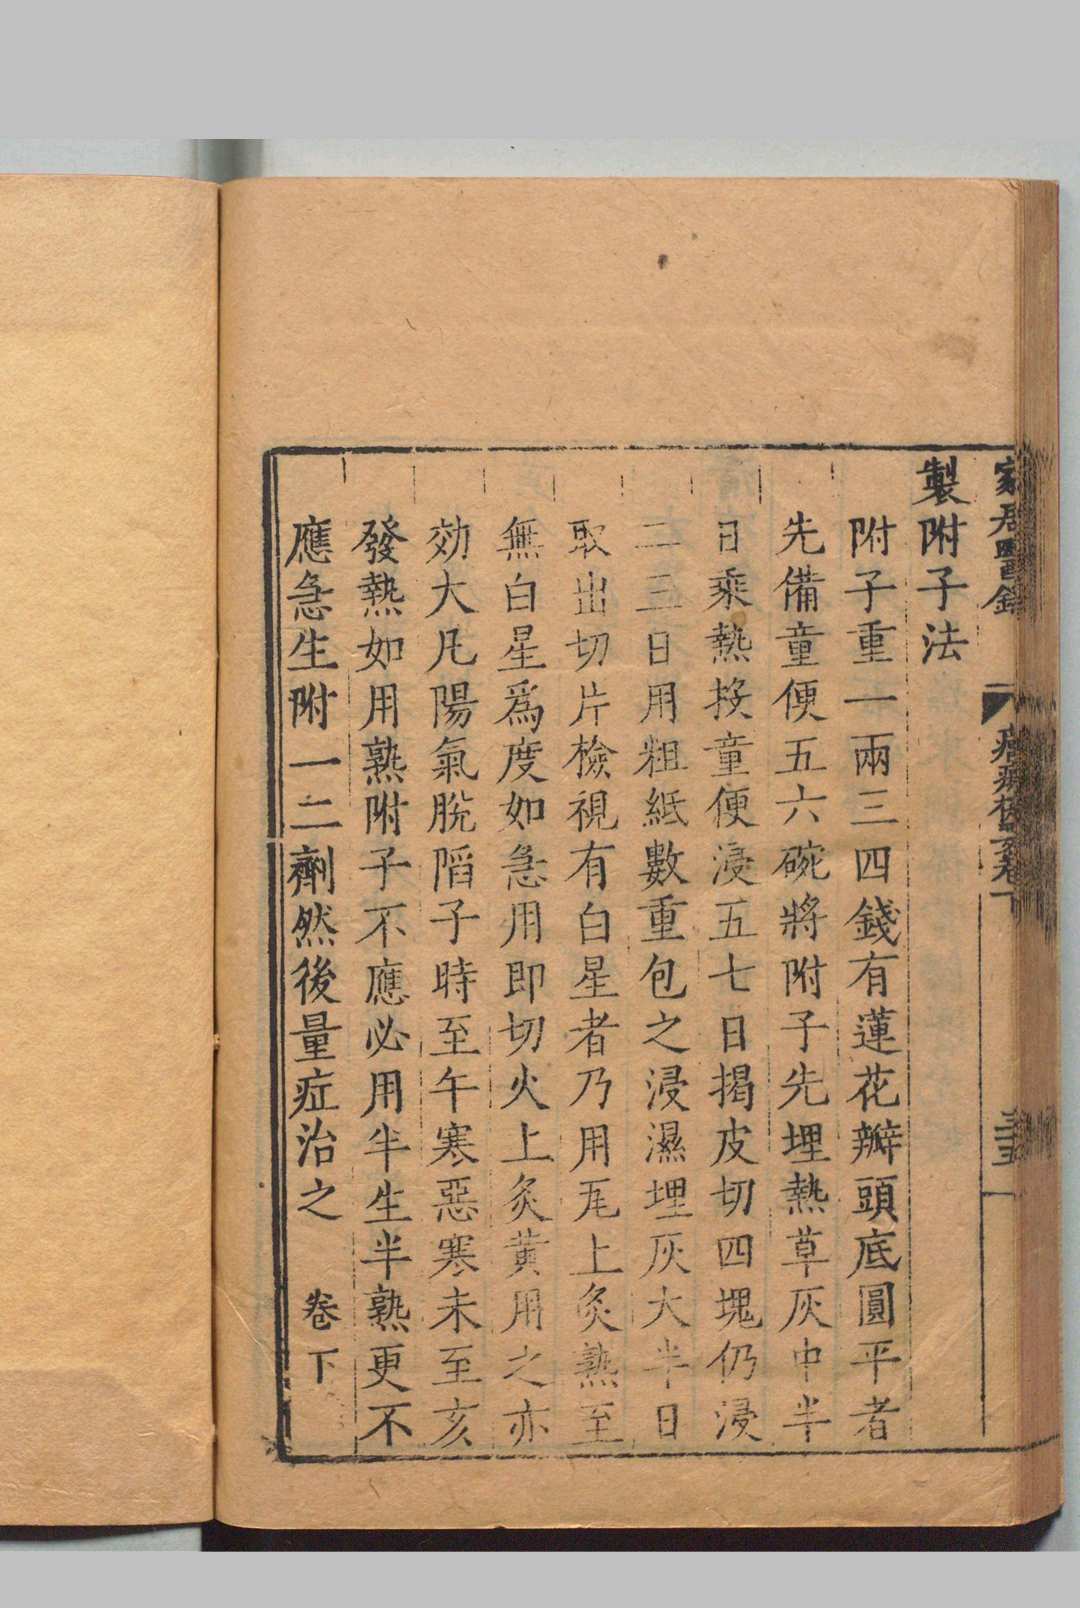 家居醫錄
製附子法
附子重一兩三四錢有蓮花瓣頭底圓平者
先備童便五六碗將附子先埋熱草灰中半
日乘熱投童便浸五七日揭皮切四塊仍浸
二三日用粗紙數重包之浸濕埋灰大半日
取出切片檢視有白星者乃用瓦上灸熟至
無白星爲度如急用即切火上灸黄用之亦
効大凡陽氣脫陷子時至午寒惡寒未至亥
發熱如用熟附子不應必用半生半熟更不
應急生附一二劑然後量症治之 卷下